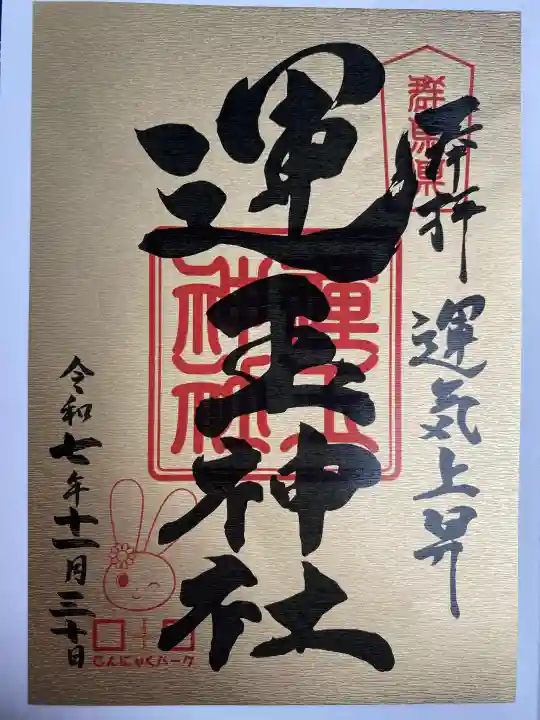 群馬県
奉拝
運気上昇
運玉神社
令和七年十一月三十日
こんにゃくパーク